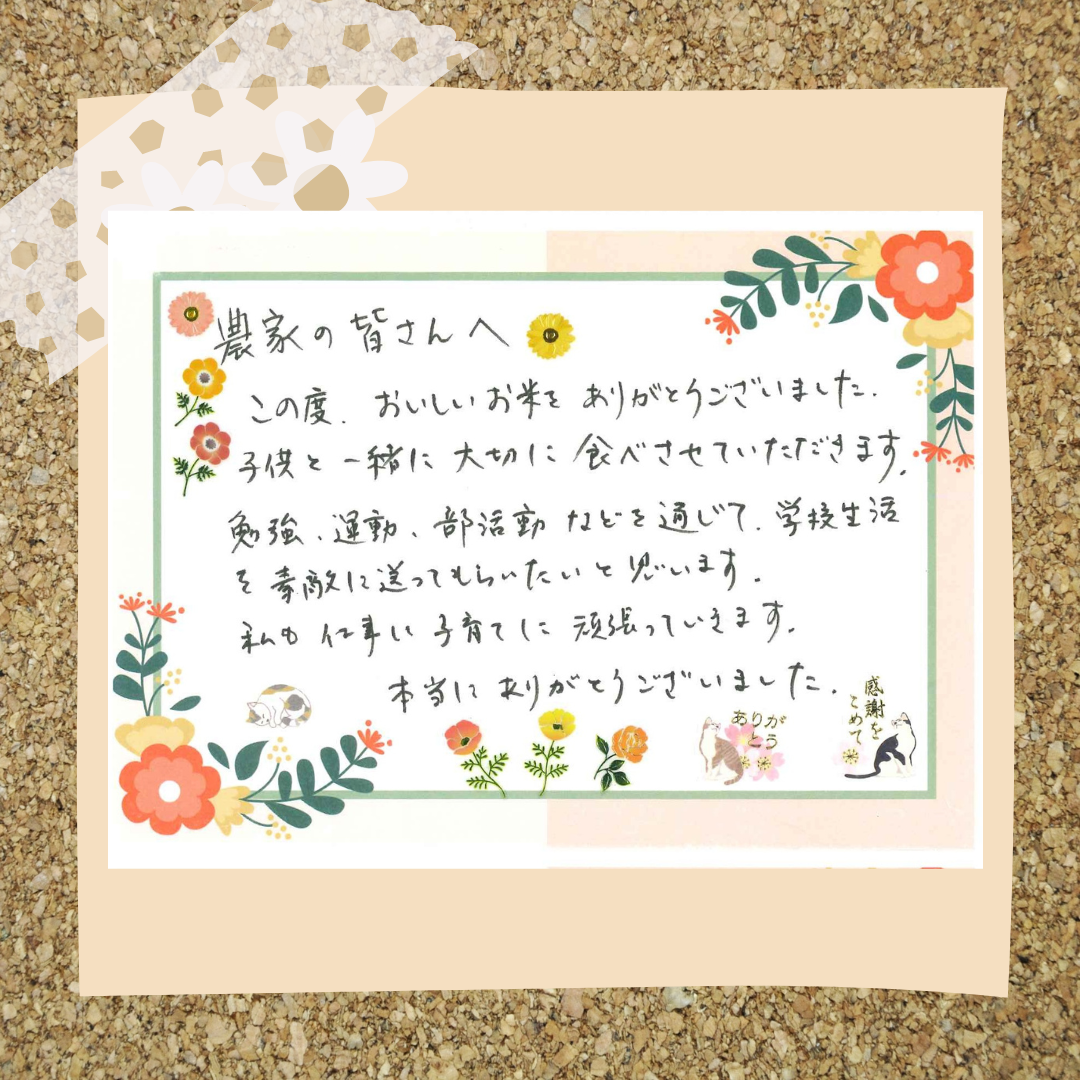 農家の皆さんへ
この度、おいしいお米をありがとうございました。
子供と一緒に大切に食べさせていただきます。
勉強、運動、部活動などを通じて、学校生活
を素敵に送ってもらいたいと思います。
私も仕事に子育てに頑張っていきます。
本当にありがとうございました。
ありが
とう
感謝を
こめて